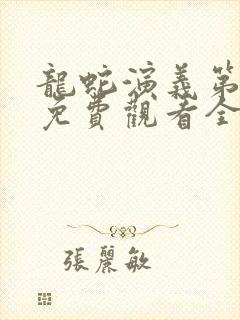 龍蛇演義第
免費觀看全
張麗敏